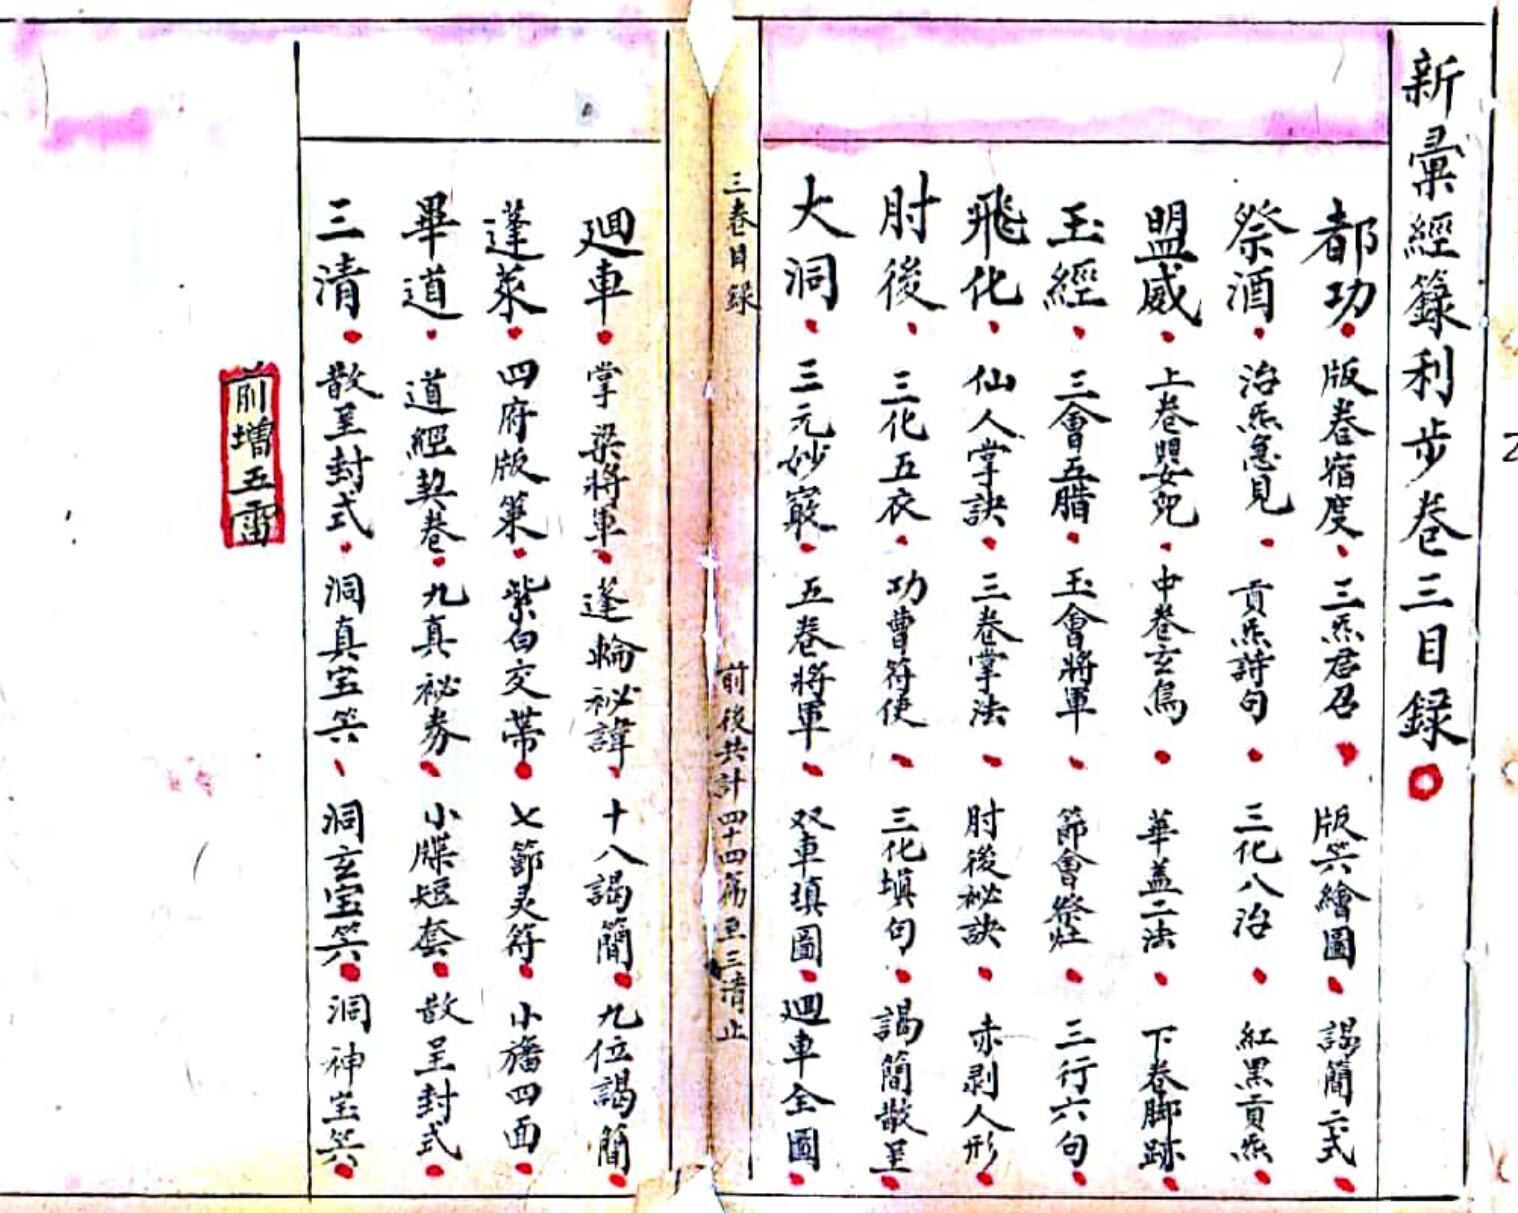 新彙經籙利步卷三目録
都功 版卷宿度 三炁君召 版笶繪圖 謁簡式
祭酒 治炁急見 貢炁詩句 三化八治 紅黑貢炁
盟威 上卷嬰兒 中卷玄鳥 華盖二法 下卷脚跡
玉經 三會五腊 玉會將軍 節會祭灶 三行六句
飛化 仙人掌訣 三卷掌法 肘後秘訣 赤剥人形
肘後 三化五衣 功曹符使 三化填句 謁簡散呈
大洞 三元妙竅 五卷將軍 双車填圖 迴車全圖
三卷目録 前後共計四十四篇至三清止
迴車 掌梁將軍 蓬輪祕諱 十八謁簡 九位謁簡
蓬萊 四府版策 紫白交帶 七節灵符 小旛四面
畢道 道經契卷 九真祕券 小牒短套 散呈封式
三清 散呈封式 洞真宝笶 洞玄宝笶 洞神宝笶
前增五雷